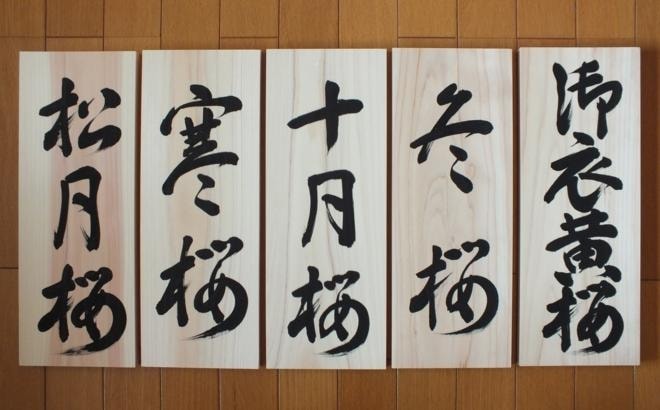 御衣黄桜
冬桜
十月桜
寒桜
松月桜